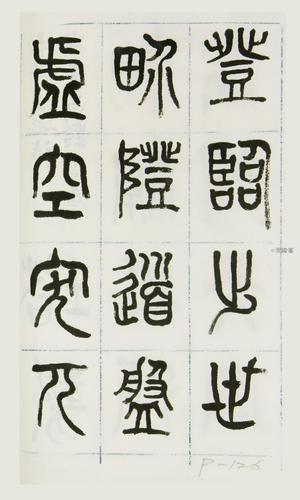 登臨出世
畍隥道盤
虛空突兀
P-126